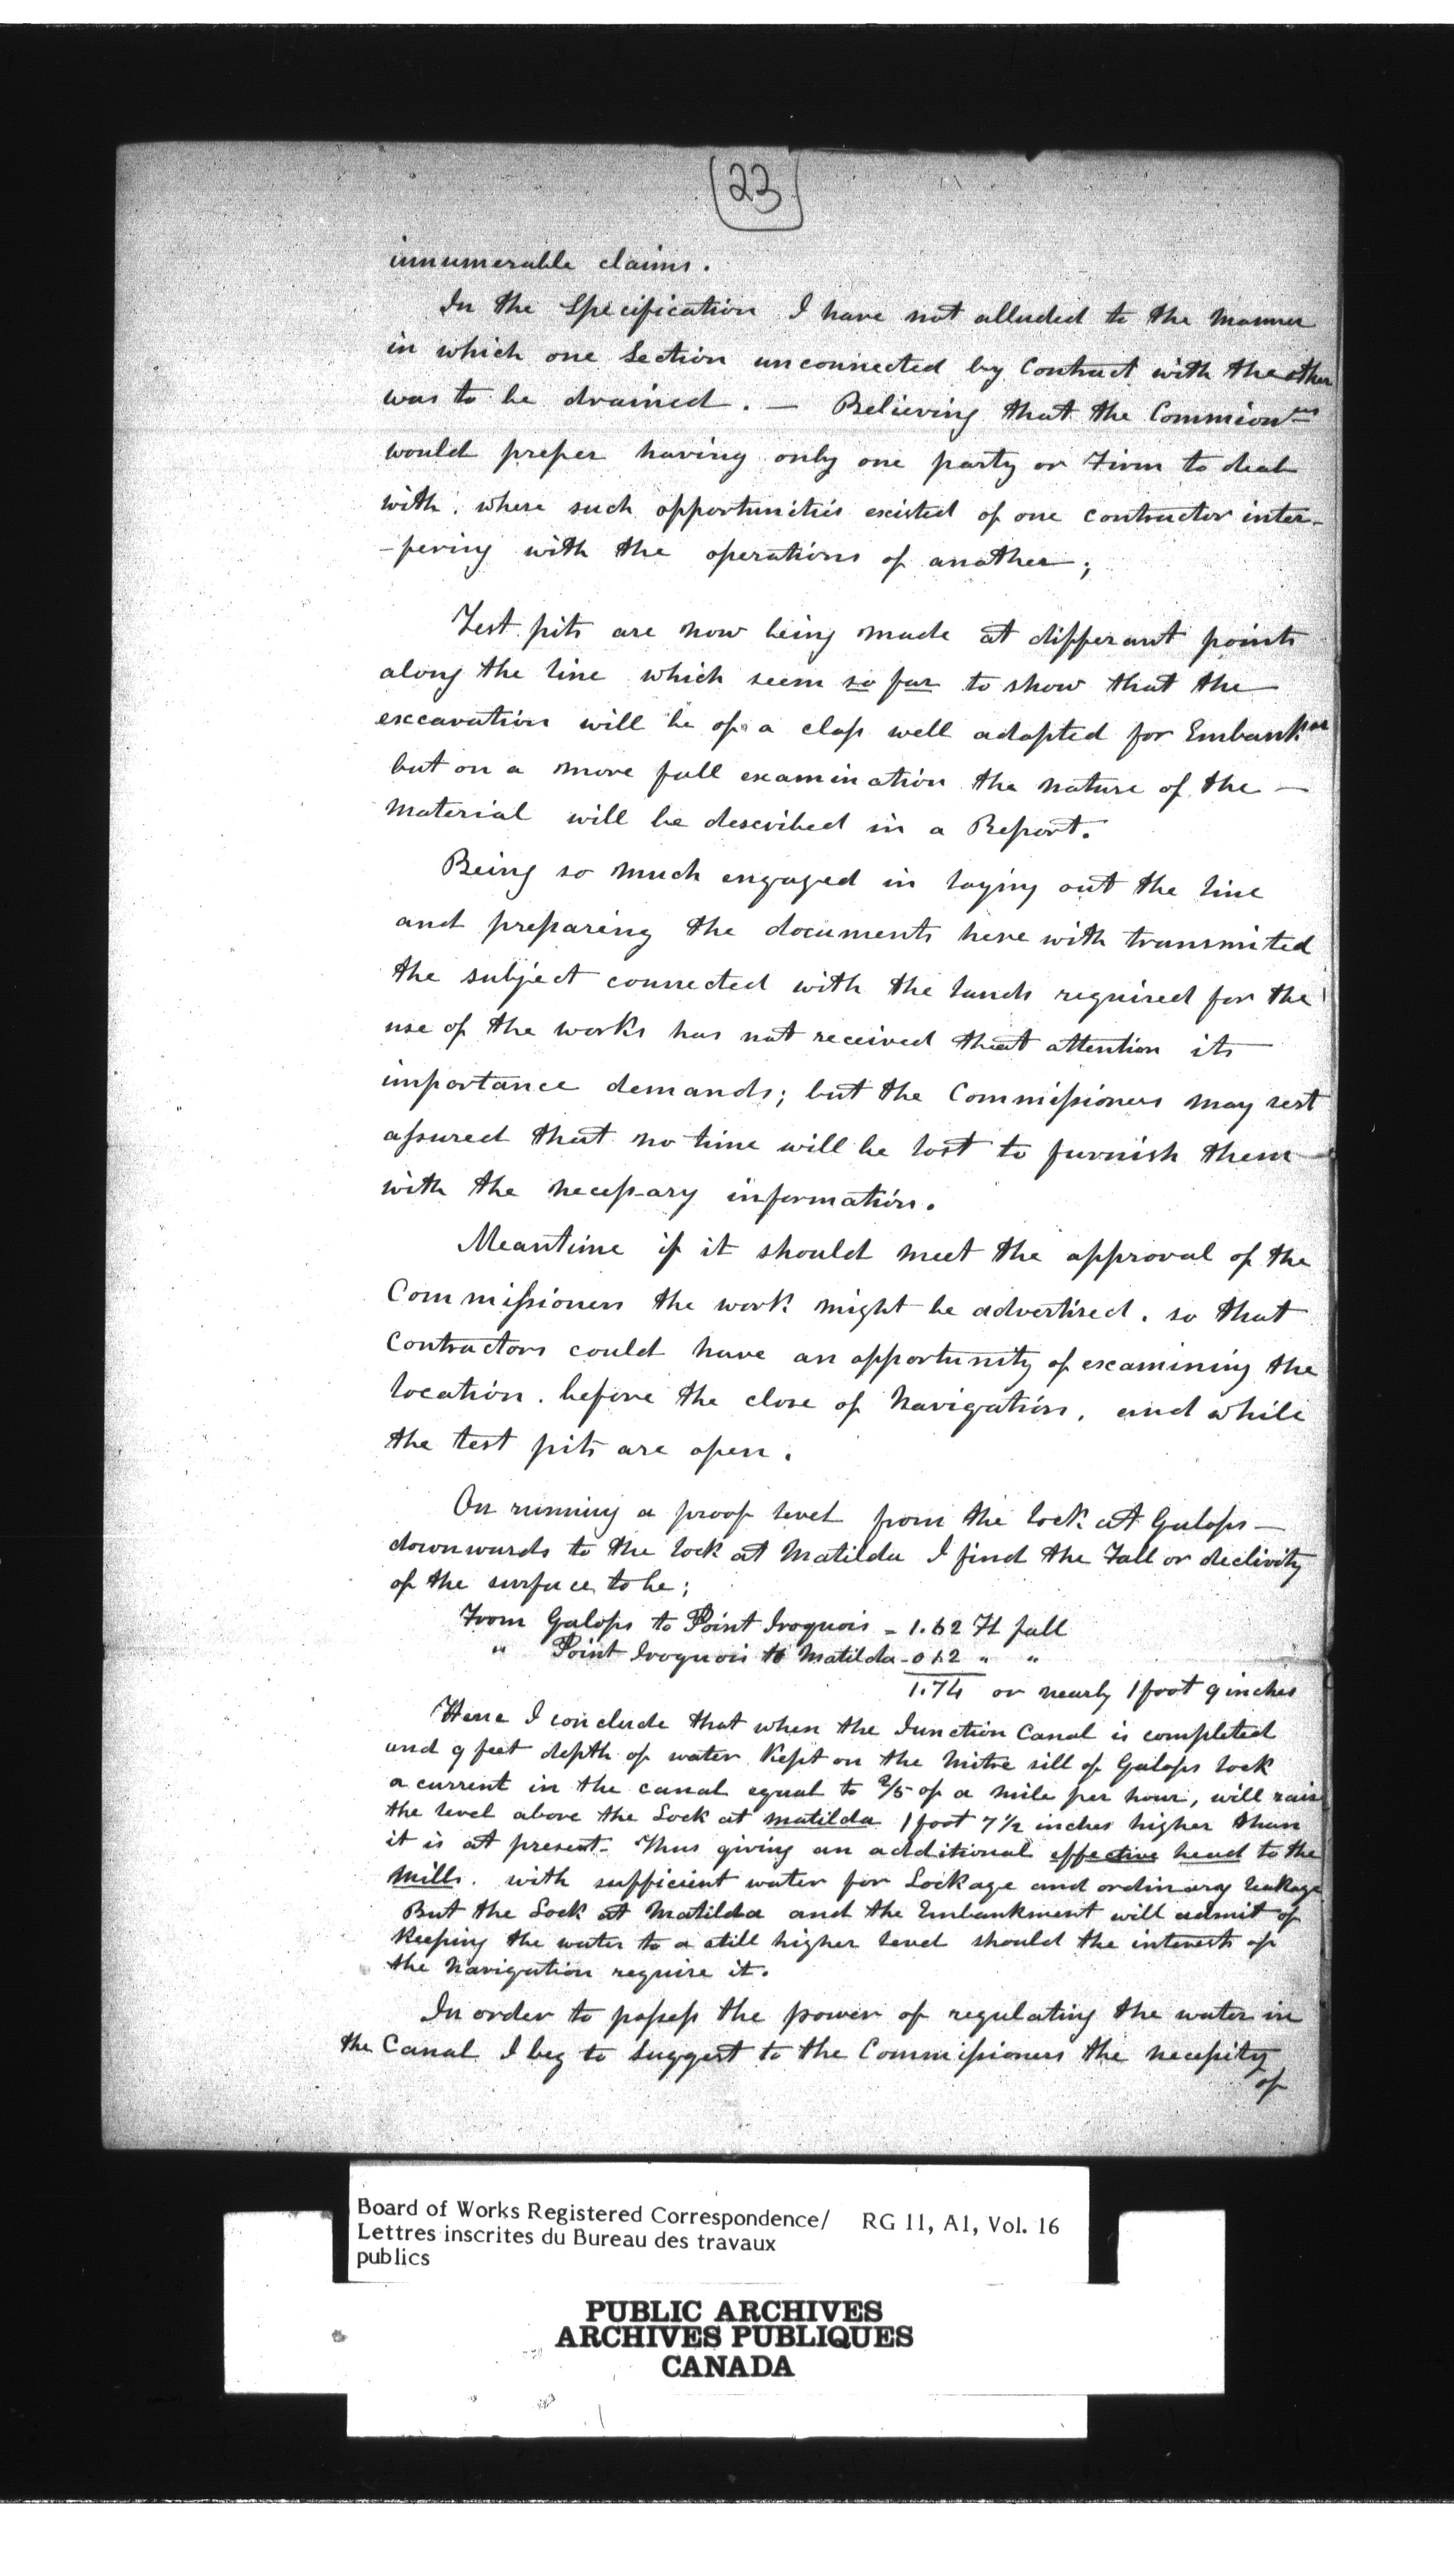 (23)
innumerable claims.
In the Specification I have not alluded to the manner
in which one Section unconnected by Contract with the other
was to be drained. — Believing that the Commissionrs
would prefer having only one party or Firm to deal
with. where such opportunities existed of one contractor inter-
-fering with the operations of another;
Test pits are now being made at differant points
along the line which seem so far to show that the —
excavation will be of a class well adapted for Embankmt
but on a more full examination the nature of the —
material will be described in a Report.
Being so much engaged in laying out the line
and preparing the documents here with transmited
the subject connected with the lands required for the
use of the works has not received that attention its
importance demands; but the Commissioners may rest
assured that no time will be lost to furnish them
with the necessary information.
Meantime if it should meet the approval of the
Commissioners the work might be advertised. so that
Contractors could have an opportunity of examining the
location. before the close of Navigation, and while
the test pits are open.
On running a proof level from the lock at Galops —
downwards to the lock at Matilda I find the Fall or declivity
of the surface to be;
From Galops to Point Iroquois - 1.62 Ft fall
" Point Iroquois to Matilda - 0.12 " "
1.74 or nearly 1 foot 9 inches
Hence I conclude that when the Junction Canal is completed
and 9 feet depth of water Kept on the mitre sill of Galops lock
a current in the canal equal to 2/5 of a mile per hour, will raise
the level above the Lock at Matilda 1 foot 7 1/2 inches higher than
it is at present. Thus giving an additional effective head to the
Mills. with sufficient water for Lockage and ordinary leakage
But the Lock at Matilda and the Embankment will admit of
Keeping the water to a still higher level should the interests of
the Navigation require it.
In order to possess the power of regulating the water in
the Canal I beg to suggest to the Commissioners the necessity
of
Board of Works Registered Correspondence/ RG 11, A1, Vol. 16
Lettres inscrites du Bureau des travaux
publics
PUBLIC ARCHIVES
ARCHIVES PUBLIQUES
CANADA